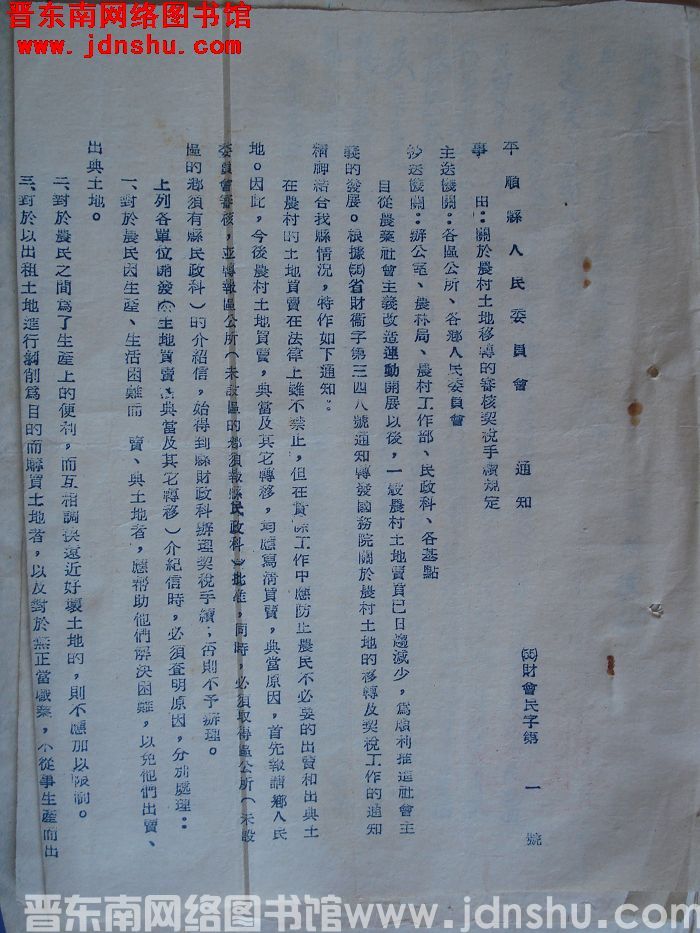 晋东南网络图书馆
www.jdnshu.com
平順縣人民委員會 通知
(55)財會民字第 一 號
事 由：關於農村土地移轉的審核契稅手續規定
主送機關：各區公所、各鄉人民委員會
抄送機關：辦公室、農林局、農村工作部、民政科、各基點
自從農業社會主義改造運動開展以後，一般農村土地賣買已日趨減少，為順利推進社會主
義的發展。根據(55)省財衞字第三四八號通知轉發國務院關於農村土地的移轉及契稅工作的通知
精神結合我縣情況，特作如下通知：
在農村的土地買賣在法律上雖不禁止，但在實際工作中應防止農民不必要的出賣和出典土
地。因此，今後農村土地買賣，典當及其它轉移，均應寫清買賣，典當原因，首先報請鄉人民
委員會審核，並轉報區公所（未設區的鄉須報縣民政科）批准，同時，必須取得區公所（未設
區的鄉須有縣民政科）的介紹信，始得到縣財政科辦理契稅手續；否則不予辦理。
上列各單位開發（土地買賣、典當及其它轉移）介紹信時，必須查明原因，分別處理：
一、對於農民因生產、生活困難而 賣、典土地者，應帮助他們解決困難，以免他們出賣、
出典土地。
二、對於農民之間為了生產上的便利，而互相調換遠近好壞土地的，則不應加以限制。
三、對於以出租土地進行剝削為目的而購買土地者，以及對於無正當職業，不從事生產而出
晋东南网络图书馆www.jdnshu.com